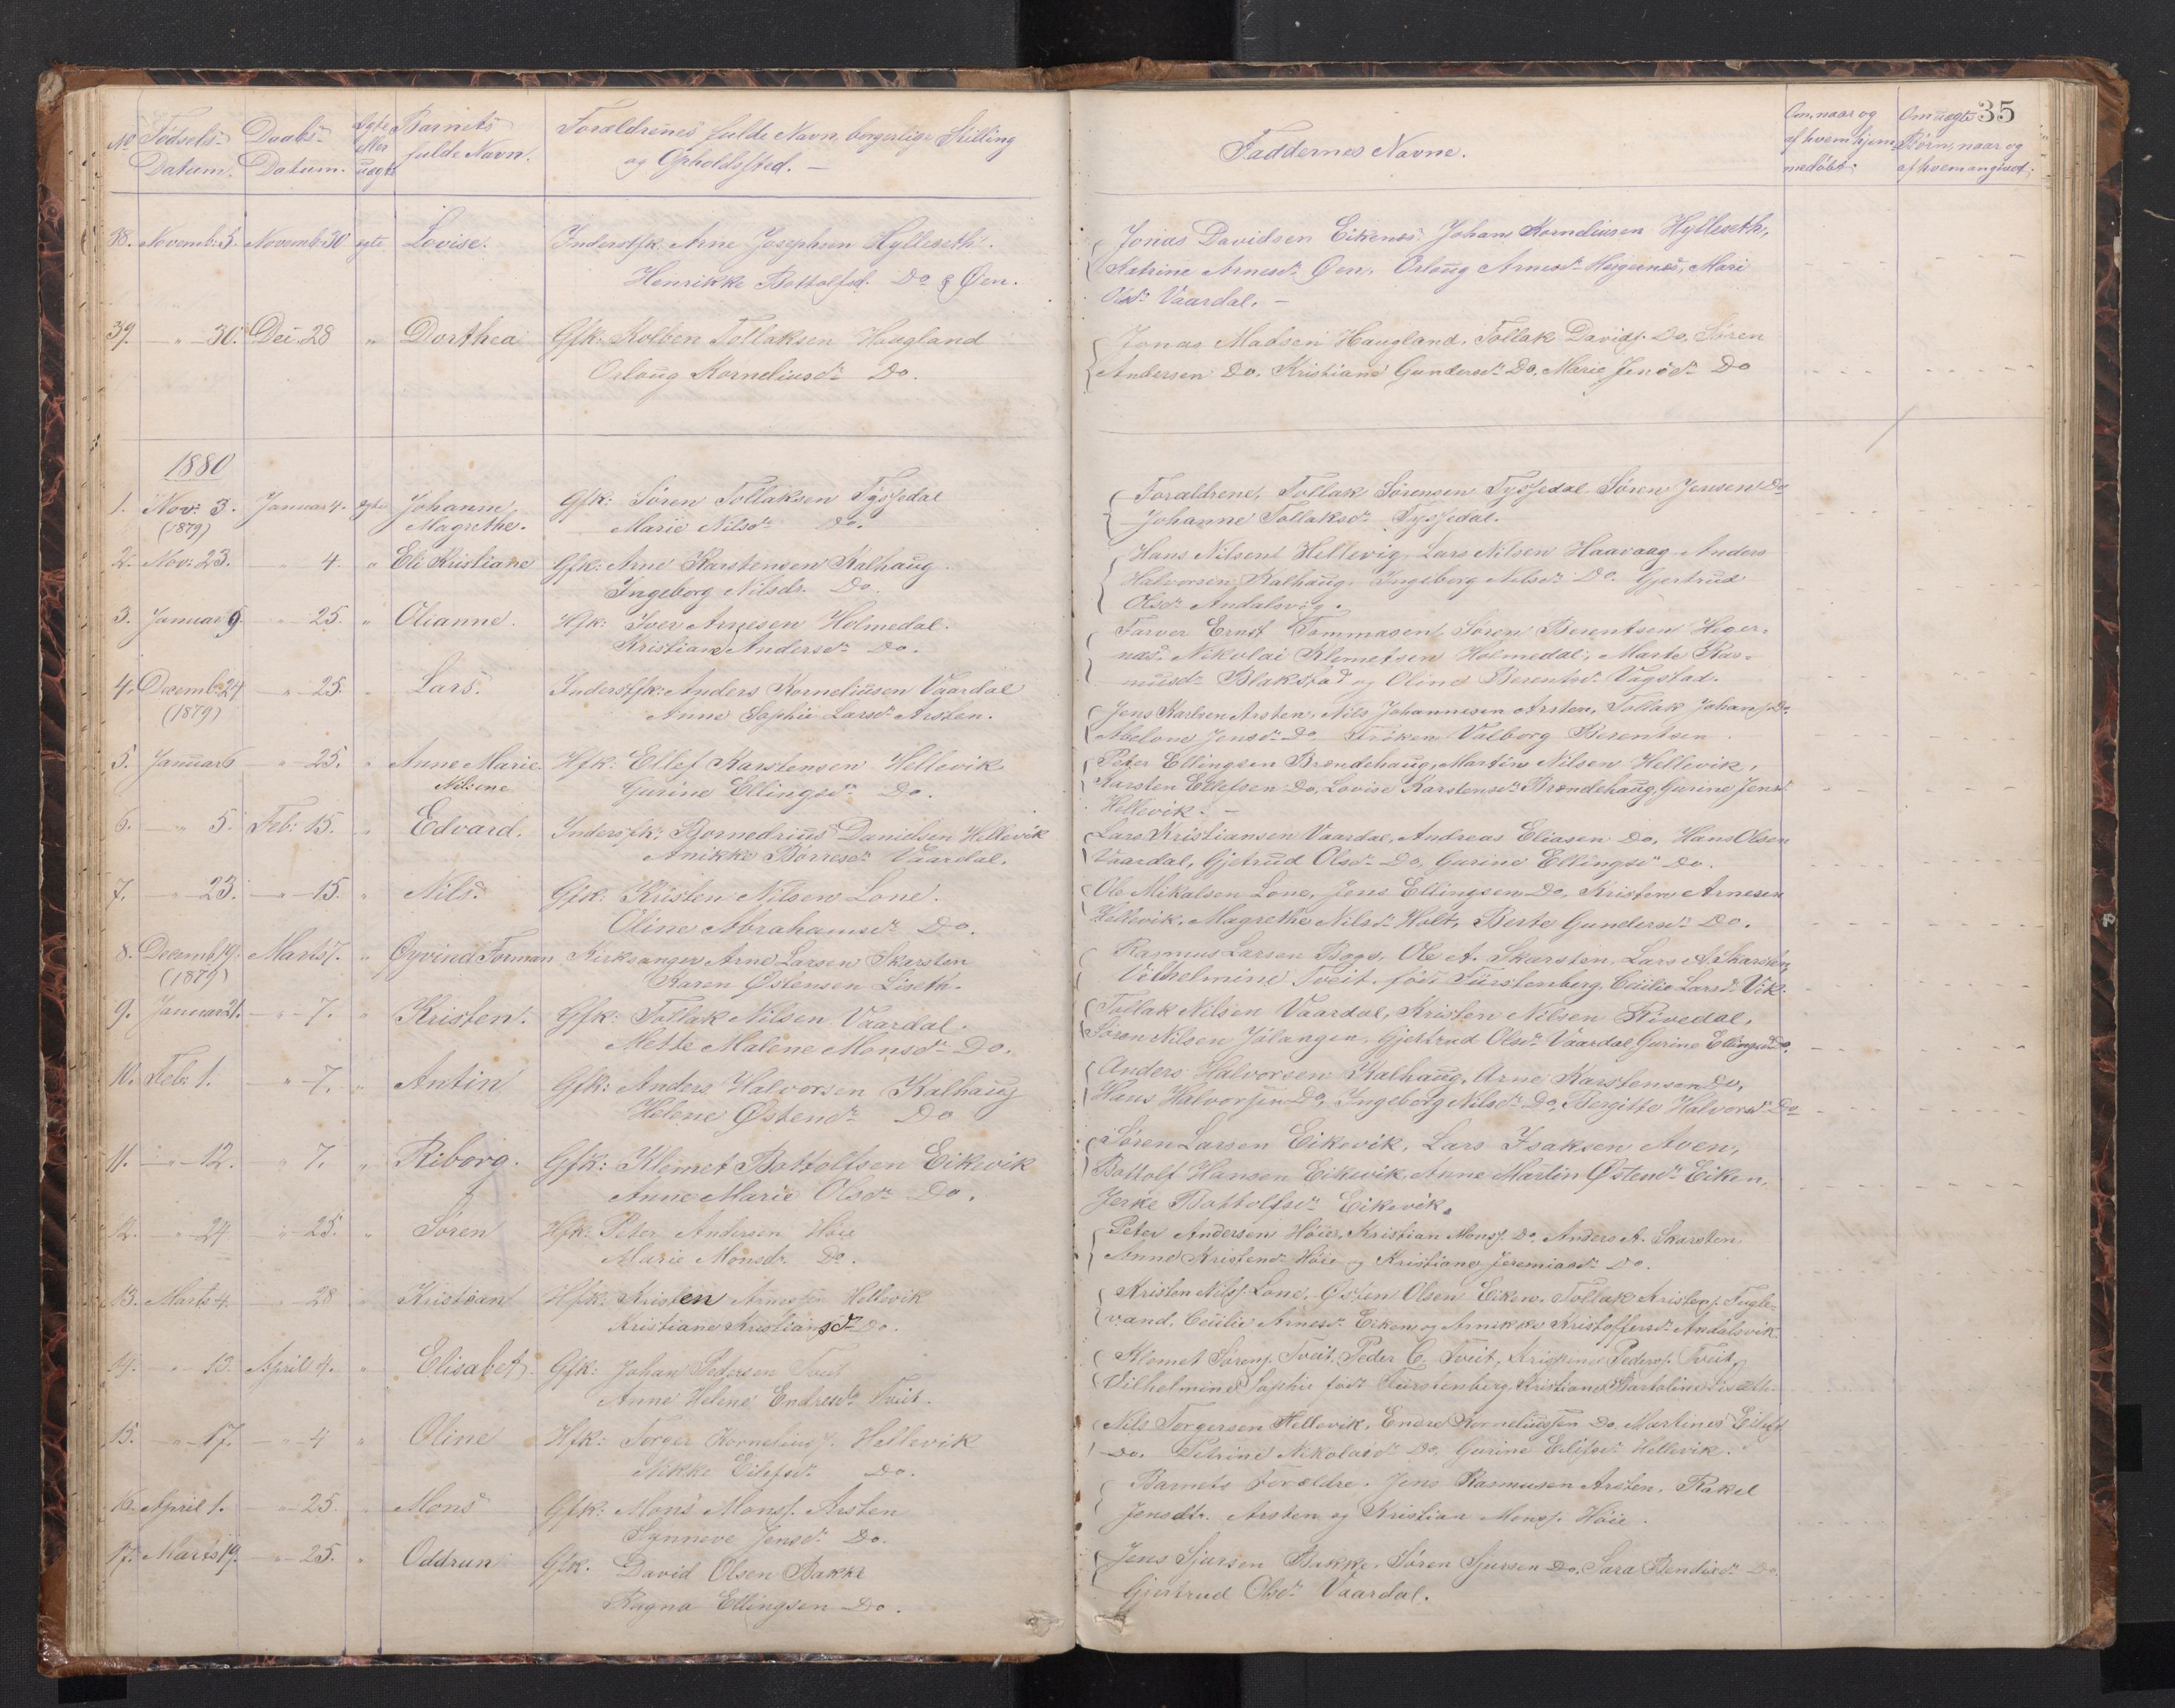 35
No Fødsels- Datum. Daabs- Datum. Ægte eller uægte Barnets fulde Navn. Forældrenes fulde Navn, borgerlige Stilling og Opholdssted. —
Faddernes Navne.
Om, naar og af hvem hjemmedøbt.
Om uægte Børn, naar og af hvem angivet.
38. Novemb: 5. Novemb 30 ægte Lovise. Inderstfk. Arne Josephsen Hylleseth.
Henrikke Bottolfsd. Do & Øen.
Jonas Davidsen Eikenes. Johan Korneliusen Hylleseth,
Katrine Arnesdr Øen. Orloug Arnesdr Hegernes, Mari
Olsdr Vaardal. —
39. — " — 30. Dec. 28 " Dorthea Gfk: Kolben Tollaksen Haugland
Orloug Korneliusdr Do.
Jonas Madsen Haugland, Tollak Davids. Do, Søren
Andersen Do. Kristiane Gundersdr Do. Marie Jensdr Do
1880
1. Nov: 3. Januar 4. ægte Johanne Gfk: Søren Tollaksen Tyssedal
(1879) Magrethe. Marie Nilsdr Do.
Forældrene, Tollak Sørensen Tyssedal, Søren Jensen Do
Johanne Tollaksdr Tyssedal.
2. Nov: 23. " 4. " Eli Kristiane Gfk: Arne Karstensen Kalhaug.
Ingeborg Nilsdr. Do.
Hans Nilsen Hellevig, Lars Nilsen Haavaag Anders
Halvorsen Kalhaug, Ingeborg Nilsdr Do. Gjertrud
Olsdr Andalsvig.
3. Januar 9. — " — 25. " Olianne. Hfk: Iver Arnesen Holmedal.
Kristiane Andersdr Do.
Farver Ernst Tommasen, Søren Berentsen Heger-
næs. Nikolai Klemetsen Holmedal, Marte Ras-
musdr Blakstad og Oline Berentsdr Vagstad.
4. Decemb 24 — " — 25. " Lars. Inderstfk: Anders Korneliusen Vaardal
(1879) Anne Sophie Larsdr Arsten.
Jens Karlsen Arsten, Nils Johannesen Arsten, Tollak Johans. Do.
Abelone Jensdr Do Frøken Valborg Berentsen.
5. Januar 6 — " — 25. " Anne Marie Hfk: Ellef Karstensen Hellevik
Nilsine Gurine Ellingsdr Do.
Peter Ellingsen Brændehaug, Martin Nilsen Hellevik,
Karsten Ellefsen Do, Lovise Karstensdr Brændehaug, Gurine Jensd
Hellevik. —
6. — " 5. Feb: 15. " Edvard. Inderstfk: Bornedrius Danielsen Hellevik
Anikke Børresdr Vaardal.
Lars Kristiansen Vaardal, Andreas Eliasen Do, Hans Olsen
Vaardal, Gjetrud Olsdr Do, Gurine Ellingsdr Do.
7. — " 23. — " — 15. " Nils. Gfk: Kristen Nilsen Lone.
Oline Abrahamsdr Do.
Ole Mikalsen Lone, Jens Ellingsen Do, Kristen Arnesen
Hellevik, Magrethe Nilsdr Holt, Berte Gundersdr Do.
8. Decemb 19. Marts 7. " Øyvind Forman Kirksanger Arne Larsen Skarsten
(1879) Karen Østensen Liseth.
Rasmus Larsen Boge, Ole A. Skarsten, Lars A. Skarsten,
Vilhelmine Tveit. født Fürstenberg, Cecilie Larsd. Vik.
9. Januar 21. — " — 7. " Kristen. Gfk: Tollak Nilsen Vaardal.
Mette Malene Monsdr Do.
Tollak Nilsen Vaardal, Kristen Nilsen Rivedal,
Søren Nilsen Jslangen, Gjertrud Olsdr Vaardal Gurine Ellingsd Do.
10. Feb: 1. " — 7. " Antin Gfk: Anders Halvorsen Kalhaug
Helene Østensdr Do
Anders Halvorsen Kalhaug, Arne Karstensen Do,
Hans Halvorsen Do, Ingeborg Nilsdr Do, Bergitte Halvorsd. Do
11. — " — 12. " 7. " Riborg. Gfk: Klemet Bottolfsen Eikevik
Anne Marie Olsdr Do.
Søren Larsen Eikevik, Lars Isaksen Aven,
Bottolf Hansen Eikevik, Anne Martin Østensdr Eiken,
Jerke Bottolfsdr Eikevik.
12. — " — 24 " — 25. " Søren Hfk: Peter Andersen Høie
Marie Monsdr. Do.
Peter Andersen Høie, Kristian Mons. Do. Anders A. Skarsten,
Anne Kristensdr Høie og Kristiane Jeremiasdr Do.
13. Marts 4. — " — 28 " Kristian Hfk: Kristen Arnesen Hellevik
Kristiane Kristiansdr Do.
Kristen Nils. Lone, Østen Olsen Eiken. Tollak Kristens. Fugle-
vand, Cecilie Arnesdr Eiken og Annikke Kristoffersdr Andalsvik.
14. — " 13. April 4. " Elisabet. Gfk: Johan Pedersen Tveit
Anne Helene Endresdr Tveit.
Klemet Sørens. Tveit, Peder C. Tveit, Peders. Tveit,
Vilhelmine Sophie født Fürstenberg, Kristiane Bartoline Liseth.
15. — " — 17. — " — 4 " Oline Hfk: Torger Kornelius. Hellevik
Nikke Eilefsdr Do.
Nils Torgersen Hellevik, Endre Korneliussen Do, Martines Eilefs
Do. Petrine Nikolaisdr Do, Gurine Eilefsdr Hellevik.
16. April 1. — " — 25. " Mons Gfk: Mons Mons. Arsten
Synneve Jensdr Do.
Barnets Forældre. Jens Rasmusen Arsten, Rakel
Jensdtr. Arsten og Kristian Mons. Høie.
17. Marts 19. — " — 25. " Oddrun Gfk. David Olsen Bakke
Ragna Ellingsen Do.
Jens Sjursen Bakke, Søren Sjursen Do, Sara Bendixdr Do.
Gjertrud Olsdr Vaardal.